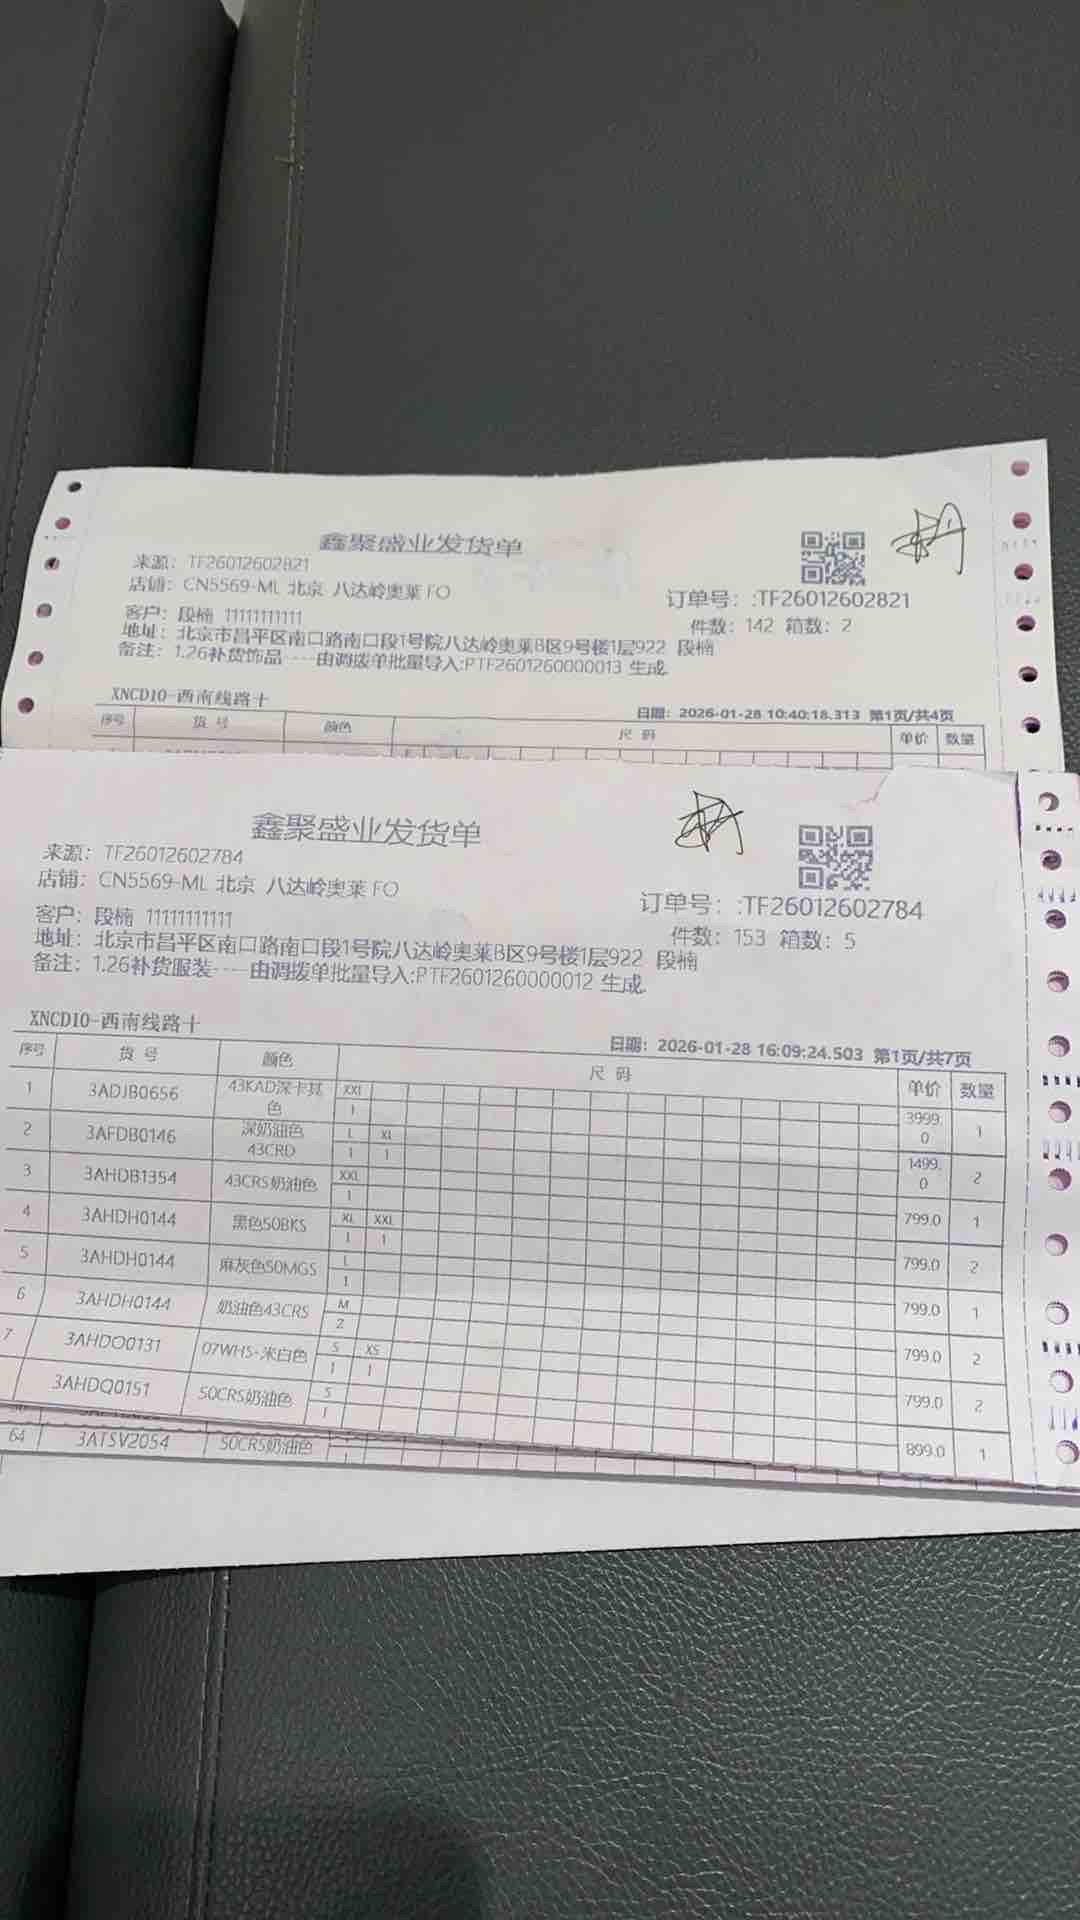 鑫聚盛业发货单
来源: TF26012602821
店铺: CN5569-ML 北京 八达岭奥莱 FO
订单号: :TF26012602821
客户: 段楠 11111111111
件数: 142 箱数: 2
地址: 北京市昌平区南口路南口段1号院八达岭奥莱B区9号楼1层922 段楠
备注: 1.26补货饰品----由调拨单批量导入:PTF2601260000013 生成.
XNCD10-西南线路十
日期: 2026-01-28 10:40:18.313 第1页/共4页
序号 货 号 颜色 尺 码 单价 数量
鑫聚盛业发货单
来源: TF26012602784
店铺: CN5569-ML 北京 八达岭奥莱 FO
订单号: :TF26012602784
客户: 段楠 11111111111
件数: 153 箱数: 5
地址: 北京市昌平区南口路南口段1号院八达岭奥莱B区9号楼1层922 段楠
备注: 1.26补货服装----由调拨单批量导入:PTF2601260000012 生成.
XNCD10-西南线路十
日期: 2026-01-28 16:09:24.503 第1页/共7页
序号 货 号 颜色 尺 码 单价 数量
1 3ADJB0656 43KAD深卡其色 XXL 1 3999.0 1
2 3AFDB0146 深奶油色43CRD L XL 1 1 1499.0 2
3 3AHDB1354 43CRS奶油色 XXL 1 799.0 1
4 3AHDH0144 黑色50BKS XL XXL 1 1 799.0 2
5 3AHDH0144 麻灰色50MGS L 1 799.0 1
6 3AHDH0144 奶油色43CRS M 2 799.0 2
7 3AHDO0131 07WHS-米白色 S XS 1 1 799.0 2
3AHDQ0151 50CRS奶油色 S 1 899.0 1
64 3ATSV2054 50CRS奶油色